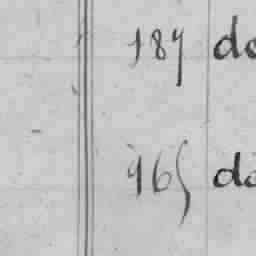 187 do
965 do